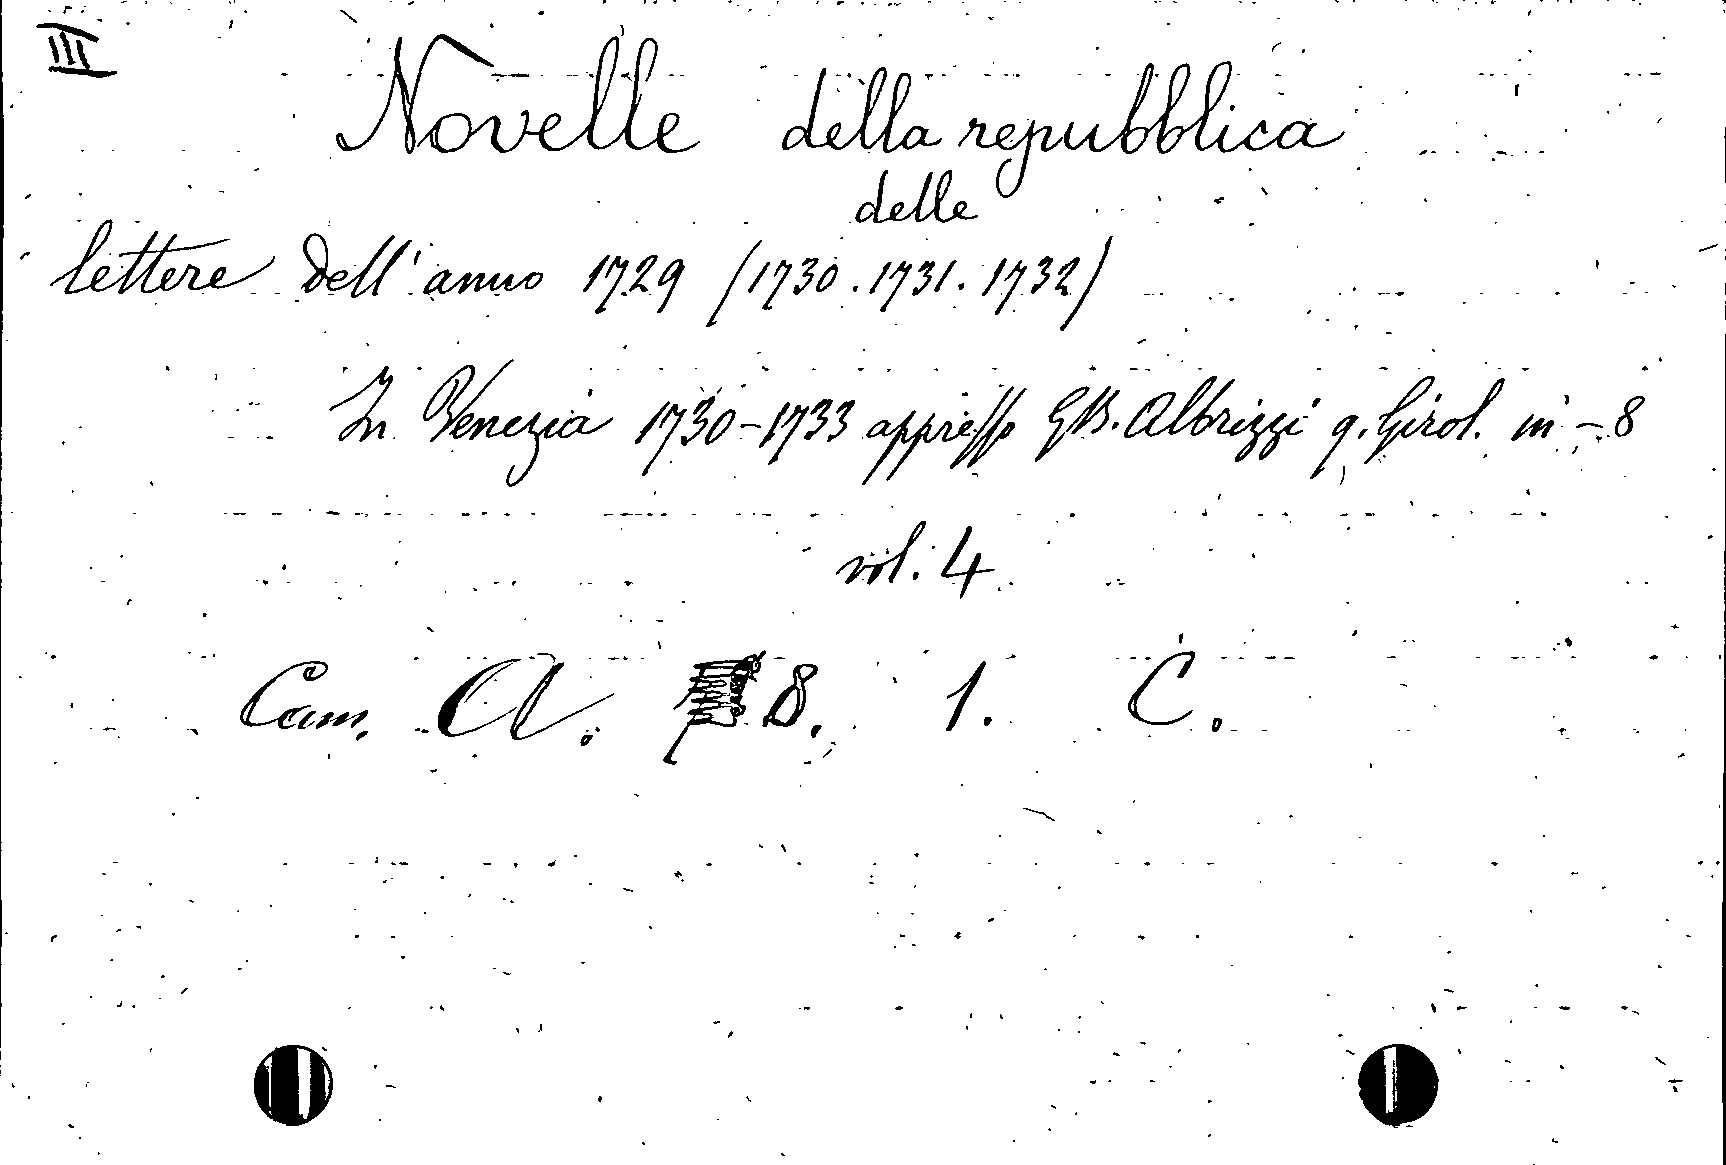 III
Novelle della repubblica
delle
lettere dell'anno 1729 (1730.1731.1732)
In Venezia 1730-1733 appresso G.B. Albrizzi q. Girol. in-8
vol. 4
Cam. A. 8. 1. C.